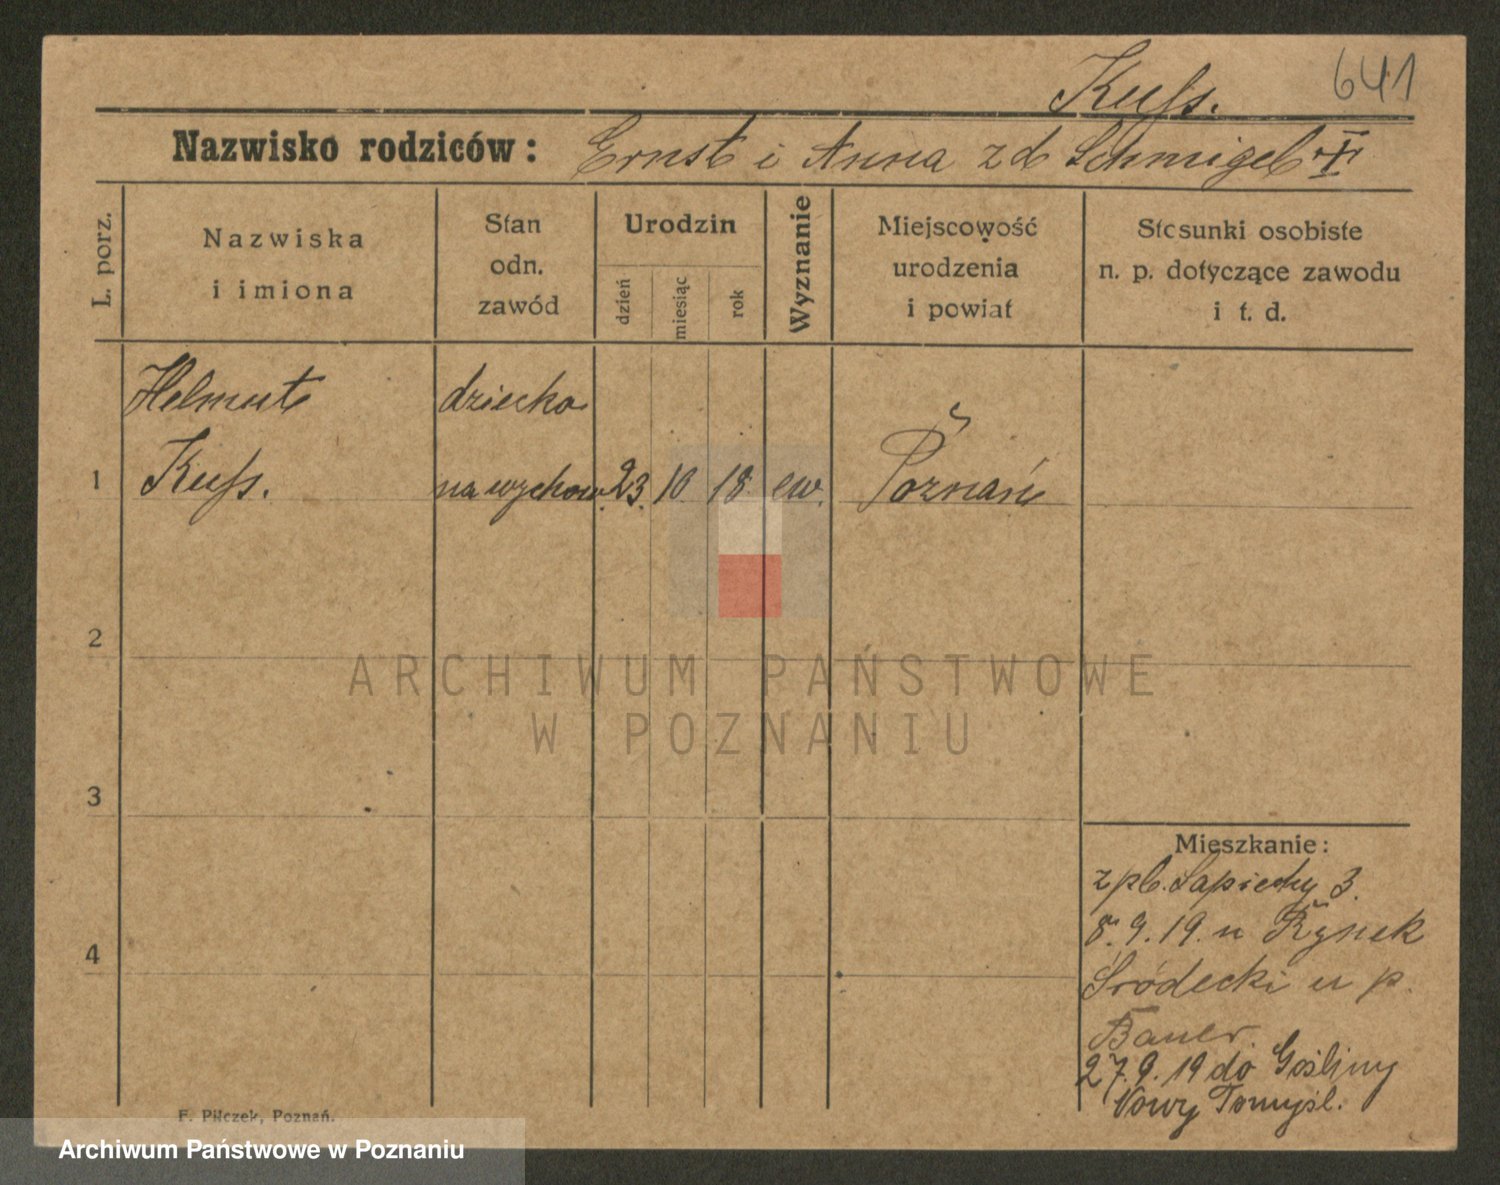 Kuſs. 641
Nazwisko rodziców: Ernst i Anna zd Schmigel
L. porz.
Nazwiska i imiona
Stan odn. zawód
Urodzin
dzień
miesiąc
rok
Wyznanie
Miejscowość urodzenia i powiat
Stosunki osobiste n. p. dotyczące zawodu i t. d.
Helmut dziecko
1 Kuſs. na wychow. 23. 10. 18. ew. Poznań
2
3
4
Mieszkanie:
z pl. Sapiechy 3.
8. 9. 19. u Rynek
Śródecki u p.
Bauer.
27. 9. 19 do Gośliny
Nowy Tomyśl.
F. Pilczek, Poznań.
ARCHIWUM PAŃSTWOWE
W POZNANIU
Archiwum Państwowe w Poznaniu